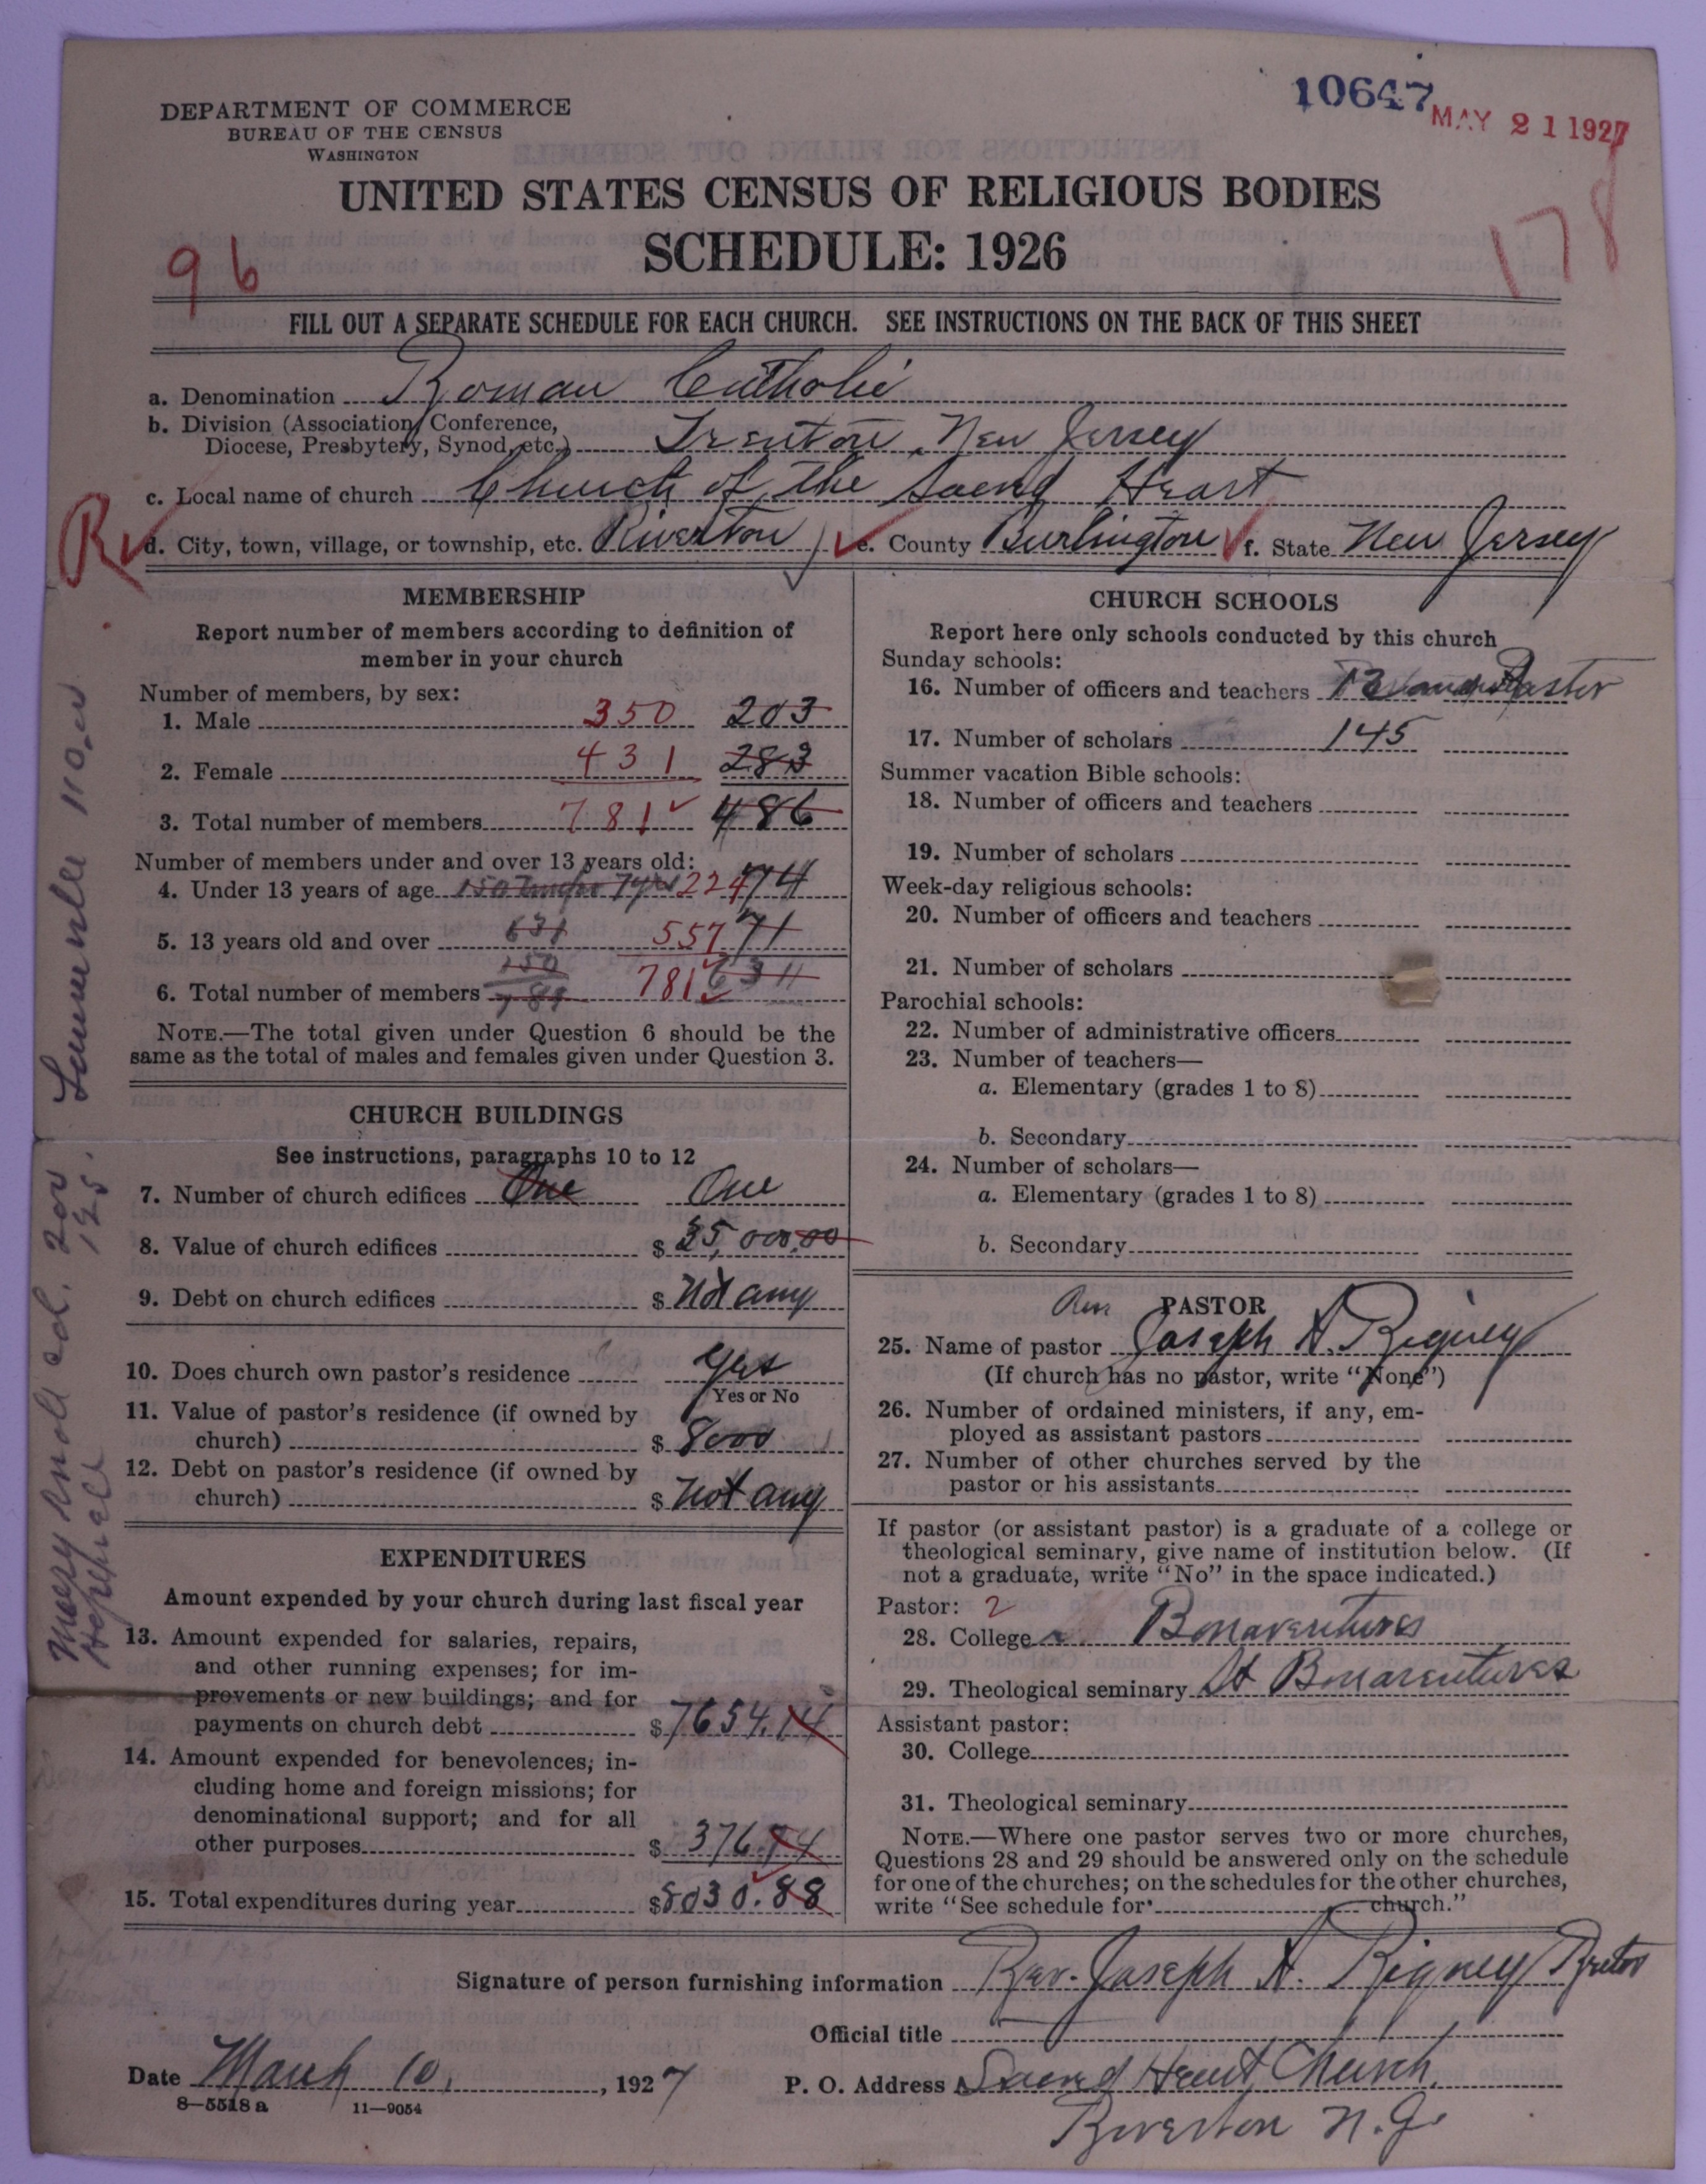 10647
MAY 21 1927
DEPARTMENT OF COMMERCE
BUREAU OF THE CENSUS
WASHINGTON
UNITED STATES CENSUS OF RELIGIOUS BODIES
SCHEDULE: 1926
96
178
FILL OUT A SEPARATE SCHEDULE FOR EACH CHURCH. SEE INSTRUCTIONS ON THE BACK OF THIS SHEET
a. Denomination Roman Catholic
b. Division (Association, Conference,
Diocese, Presbytery, Synod, etc.) Trenton, New Jersey
c. Local name of church Church of the Sacred Heart
R d. City, town, village, or township, etc. Riverton e. County Burlington f. State New Jersey
MEMBERSHIP
Report number of members according to definition of
member in your church
Number of members, by sex:
1. Male 350 203
2. Female 431 283
3. Total number of members 781 486
Number of members under and over 13 years old:
4. Under 13 years of age 150 Under 7 yrs 224 74
5. 13 years old and over 631 557 71
6. Total number of members 150 781 781 631
NOTE.—The total given under Question 6 should be the
same as the total of males and females given under Question 3.
CHURCH BUILDINGS
See instructions, paragraphs 10 to 12
7. Number of church edifices One One
8. Value of church edifices $ 35,000.00
9. Debt on church edifices $ Not any
10. Does church own pastor's residence Yes
Yes or No
11. Value of pastor's residence (if owned by
church) $ 8000
12. Debt on pastor's residence (if owned by
church) $ Not any
EXPENDITURES
Amount expended by your church during last fiscal year
13. Amount expended for salaries, repairs,
and other running expenses; for im-
provements or new buildings; and for
payments on church debt $ 7654.14
14. Amount expended for benevolences; in-
cluding home and foreign missions; for
denominational support; and for all
other purposes $ 376.74
15. Total expenditures during year $ 8030.88
CHURCH SCHOOLS
Report here only schools conducted by this church
Sunday schools:
16. Number of officers and teachers 12 and Pastor
17. Number of scholars 145
Summer vacation Bible schools:
18. Number of officers and teachers
19. Number of scholars
Week-day religious schools:
20. Number of officers and teachers
21. Number of scholars
Parochial schools:
22. Number of administrative officers
23. Number of teachers—
a. Elementary (grades 1 to 8)
b. Secondary
24. Number of scholars—
a. Elementary (grades 1 to 8)
b. Secondary
Rev PASTOR
25. Name of pastor Joseph A. Rigney
(If church has no pastor, write "None")
26. Number of ordained ministers, if any, em-
ployed as assistant pastors
27. Number of other churches served by the
pastor or his assistants
If pastor (or assistant pastor) is a graduate of a college or
theological seminary, give name of institution below. (If
not a graduate, write "No" in the space indicated.)
Pastor: 2
28. College Bonaventures
29. Theological seminary St Bonaventures
Assistant pastor:
30. College
31. Theological seminary
NOTE.—Where one pastor serves two or more churches,
Questions 28 and 29 should be answered only on the schedule
for one of the churches; on the schedules for the other churches,
write "See schedule for church."
Signature of person furnishing information Rev. Joseph A. Rigney
Official title
Date March 10, 1927
P. O. Address Sacred Heart Church,
Riverton N.J.
8—5518 a 11—9054